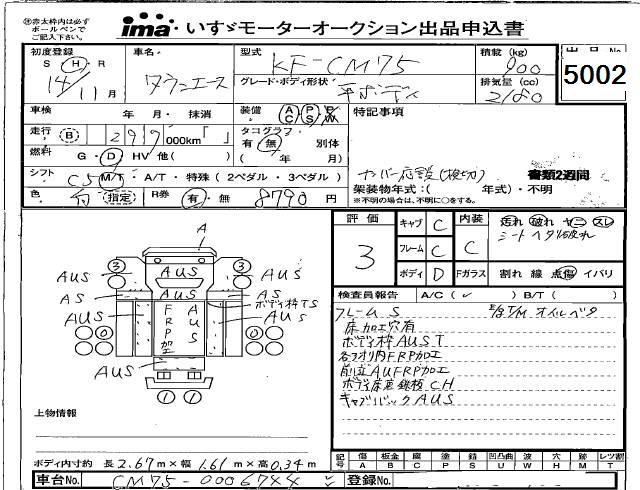 ㊟赤太枠内は必ず
ボールペンで
ご記入下さい。
ima いすゞモーターオークション出品申込書
初度登録 車名 型式 積載 (kg) 出品No
S H R タウンエース KF-CM75 900 5002
14/11月 グレード・ボディ形状 平ボディ 排気量 (cc) 2180
車検 年・月・抹消 装備 AC PS PW 特記事項
走行 B 299,000km「 」 タコグラフ
燃料 G・D・HV 他( ) 有 無 別体 ( 年 月)
シフト C5 M/T・A/T・特殊(2ペダル・3ペダル) 書類2週間
架装物年式:( 年式)・不明
※不明の場合は、不明に○をする。
色 指定 R券 有・無 8790円
評価 3
キャブ C 内装 C 汚れ 破れ ヤニ スレ
フレーム C シートヘタリ破れ
ボディ D Fガラス 割れ 線 点傷 イバリ
検査員報告 A/C( ✓ ) B/T( )
フレームS E/g T/M オイルベタ
床加工穴有
ボディ枠AUST
各フオリ内FRP加工
前立AUFRP加工
ボディ床悪鉄板CH
キャブバックAUS
A
3 AUS 3
AUS AUS
AS AS
ボディ枠TS
AUS FRP加工 AUS AUS
0 0
AUS AUS
1 1
上物情報
ボディ内寸約 長2.67m×幅1.61m×高0.34m
記号 傷 A 板金 B 腐 C 塗 P 錆 S 凹凸曲 U 波 W 穴 H 跡 M レツ割 T
車台No. CM75-0006744 登録No.